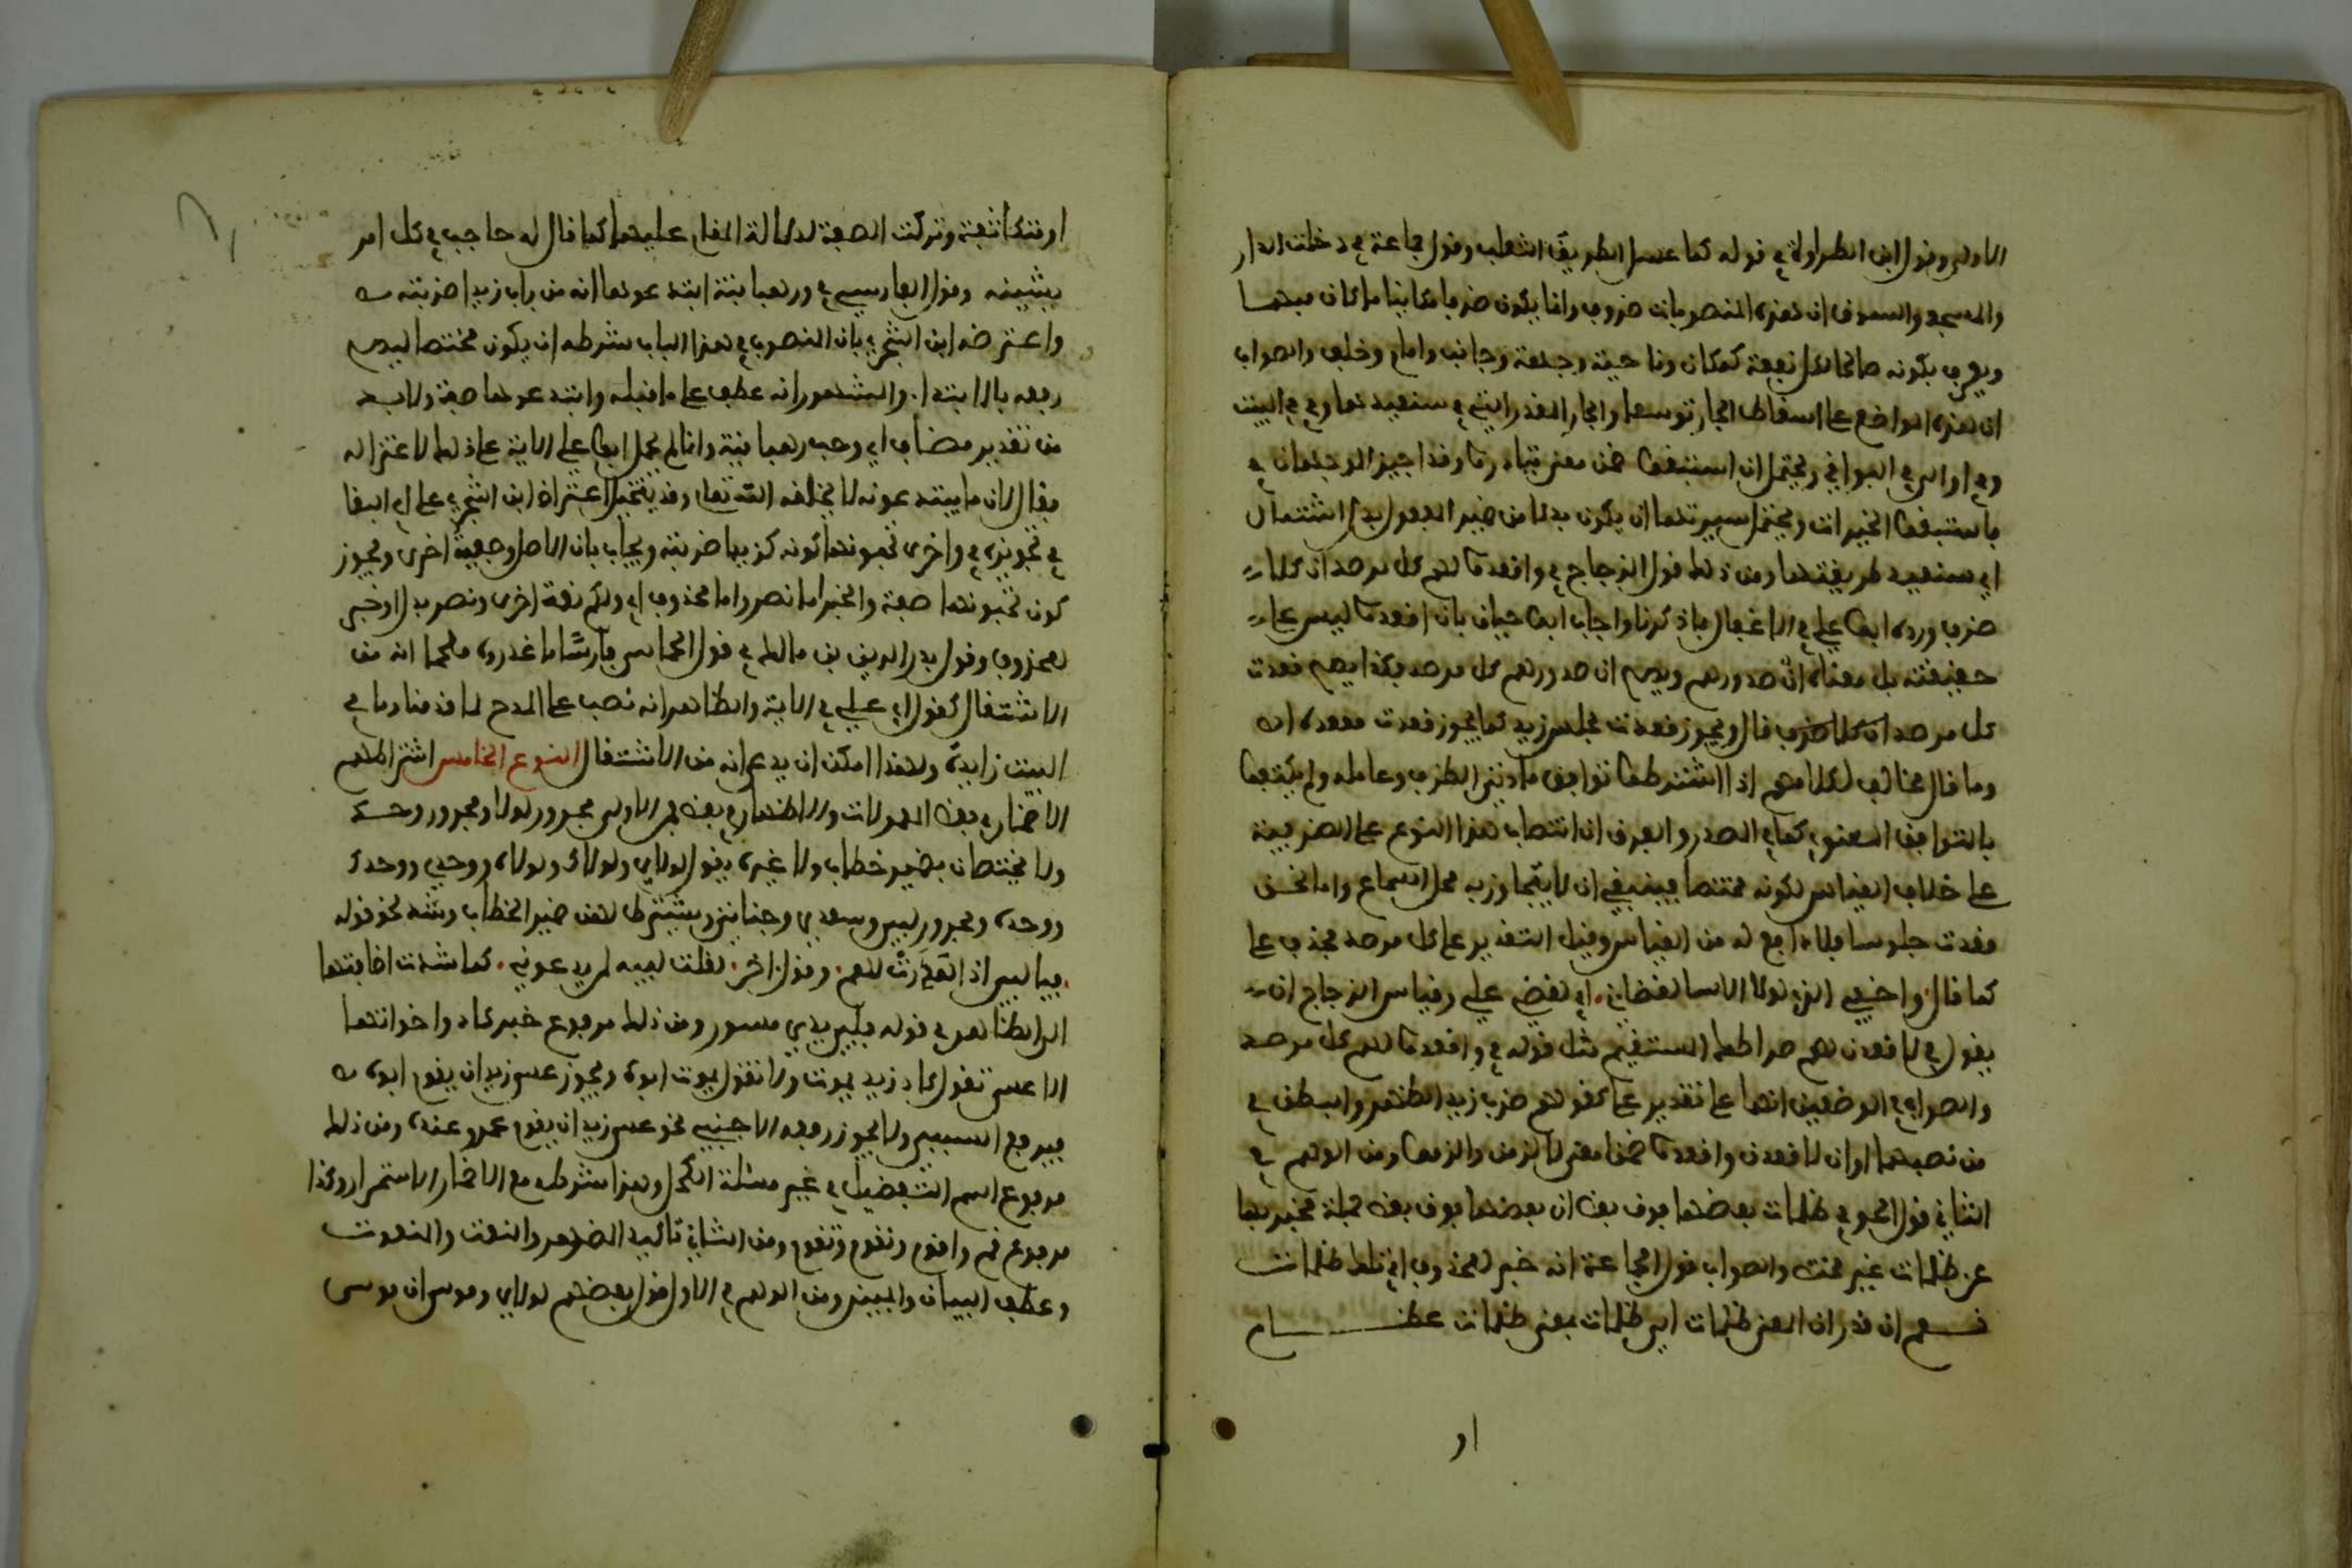 الاولى وقول ابن الطراوة في قوله كما عسل الطريق الثعلب وقول جماعة في دخلت الدار
والمسجد والسوق ان هذه المنصوبات ظروف وانما يكون ظرفا مكانيا ما كان مبهما
ويعرف بكونه صالحا لكل بقعة كمكان وناحية وجهة وجانب وامام وخلف والصواب
ان هذه المواضع على اسقاط الجار توسعا والجار المقدر الى في سنعيدها وفي في البيت
وفي او الى في البواقي ويحتمل ان استبقوا ضمن معنى تبادروا وقد اجيز الوجهان في
فاستبقوا الخيرات ويحتمل سيرتها ان يكون بدلا من ضمير المفعول بدل اشتمال
اي سنعيد طريقتها ومن ذلك قول الزجاج في واقعدوا لهم كل مرصد ان كلا
ظرف ورده ابو علي في الاغفال بما ذكرنا واجاب ابو حيان بان اقعدوا ليس على
حقيقته بل معناه ارصدوهم ويصح ان صدوهم كل مرصد فكذا يصح قعدت
كل مرصد قال ويجوز قعدت مجلس زيد كما يجوز قعدت مقعده اه
وما قال مخالف لكلامهم اذ اشترطوا توافق مادتي الظرف وعامله ولم يكتفوا
بالتوافق المعنوي كما في المصدر والفرق ان انتصاب هذا النوع على الظرفية
على خلاف القياس لكونه مختصا فينبغي ان لا يتجاوز به محل السماع واما نحو
قعدت جلوسا فلا دافع له من القياس وقيل التقدير على كل مرصد فحذف على
كما قال واخفي الذي لولا الاسا لقضاني اي لقضى علي وقياس الزجاج ان
يقول في لاقعدن لهم صراطك المستقيم مثل قوله في واقعدوا لهم كل مرصد
والصواب في الموضعين انهما على تقدير على كقولهم ضرب زيد الظهر والبطن في
من نصبهما او ان لاقعدن واقعدوا ضمنا معنى لالزمن والزموا ومن الوهم في
الثاني قول الحوفي في ظلمات بعضها فوق بعض ان بعضها فوق بعض جملة مخبر بها
عن ظلمات وظلمات غير مختص والصواب قول الجماعة انه خبر لمحذوف اي تلك ظلمات
نعم ان قدر ان المعنى ظلمات اي ظلمات بمعنى ظلمات عظام
او
او متكاثفة وتركت الصفة لدلالة المقام عليها كما قال له حاجب في كل امر
يشينه وقول الفارسي في ورهبانية ابتدعوها انه من باب زيدا ضربته
واعترضه ابن الشجري بان المنصوب في هذا الباب شرطه ان يكون مختصا ليصح
رفعه بالابتداء والمشهور انه عطف على ما قبله وابتدعوها صفة ولا بد
من تقدير مضاف اي وحب رهبانية وانما لم يحمل ابو علي الاية على ذلك لاعتزاله
فقال لان ما يبتدعونه لا يخلقه الله تعالى وقد يتخيل اعتراض ابن الشجري على ابي البقا
في تجويزه في واخرى تحبونها كونه كزيدا ضربته ويجاب بان الاصل وصفة اخرى ويجوز
كون تحبونها صفة والخبر اما نصر واما محذوف اي ولكم نعمة اخرى ونصر بدل او خبر
لمحذوف وقول بدر الدين بن مالك في قول الحماسي فارسا ما غادروه ملحما انه من
الاشتغال كقول ابي علي في الاية والظاهر انه نصب على المدح لما قدمنا وما في
البيت زايدة ولهذا امكن ان يدعى انه من الاشتغال النوع الخامس اشتراطهم
الاضمار في بعض المعمولات والاظهار في بعض فمن الاول مجرور لولا ومجرور وحد
ولا يختصان بضمير خطاب ولا غيره فيقول لولاي ولولاك ولولاه ووحدي ووحدك
ووحده ومجرور لبي وسعدي وحناني ويشترط لهن ضمير الخطاب وشذ نحو قوله
فيا لبي اذ هدرت لهم وقول اخر لقلت لبيه لمن يدعوني كما شذت اضافتها
الى الظاهر في قوله فلبي يدي مسور ومن ذلك مرفوع خبر كاد واخواتها
الا عسى تقول كاد زيد يموت ولا تقول يموت ابوه ويجوز عسى زيد ان يقوم ابوه
فيرفع السببي ولا يجوز رفعه الاجنبي نحو عسى زيد ان يقوم عمرو عنده ومن ذلك
مرفوع اسم التفضيل في غير مسئلة الكحل وهذا شرطه مع الاضمار الاستتار وكذا
مرفوع قم واقوم ونقوم وتقوم ومن الثاني تاكيد الاسم المظهر والنعت والمنعوت
وعطف البيان والمبين ومن الوهم في الاول قول بعضهم لولاي وموسى ان موسى